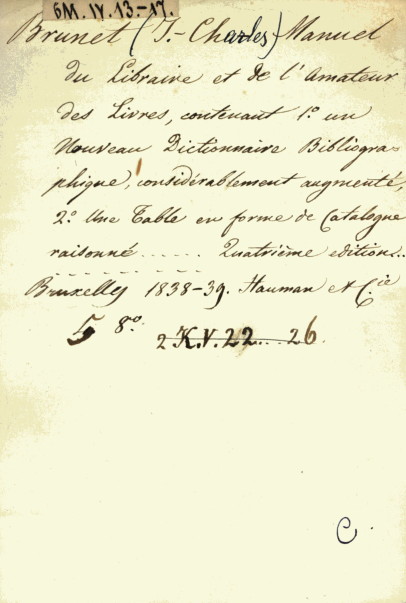 6M. IV. 13.-17.
Brunet (J.-Charles) Manuel
du Libraire et de l'Amateur
des Livres, contenant 1º un
Nouveau Dictionnaire Bibliogra-
phique, considérablement augmenté,
2º Une Table en forme de Catalogue
raisonné ..... Quatrième edition...
Bruxelles 1838-39. Hauman et C.ie
5 8º
2 K.V. 22... 26.
C.